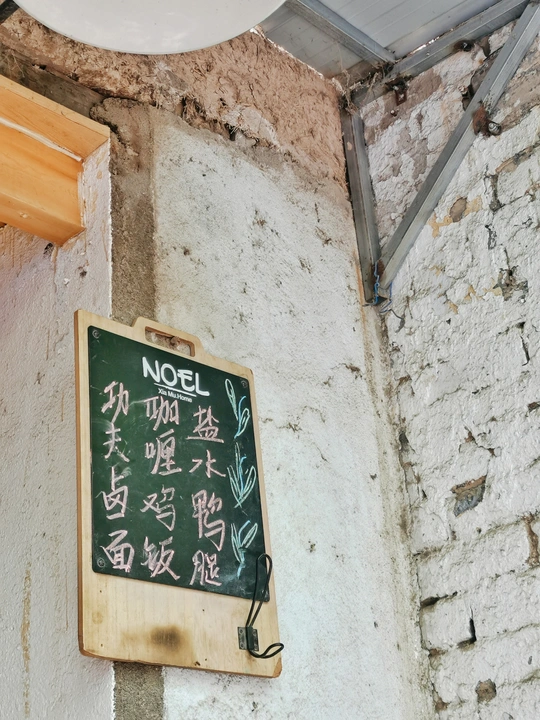 NOEL
Xia Mu.Home
盐水鸭腿
咖喱鸡饭
功夫卤面